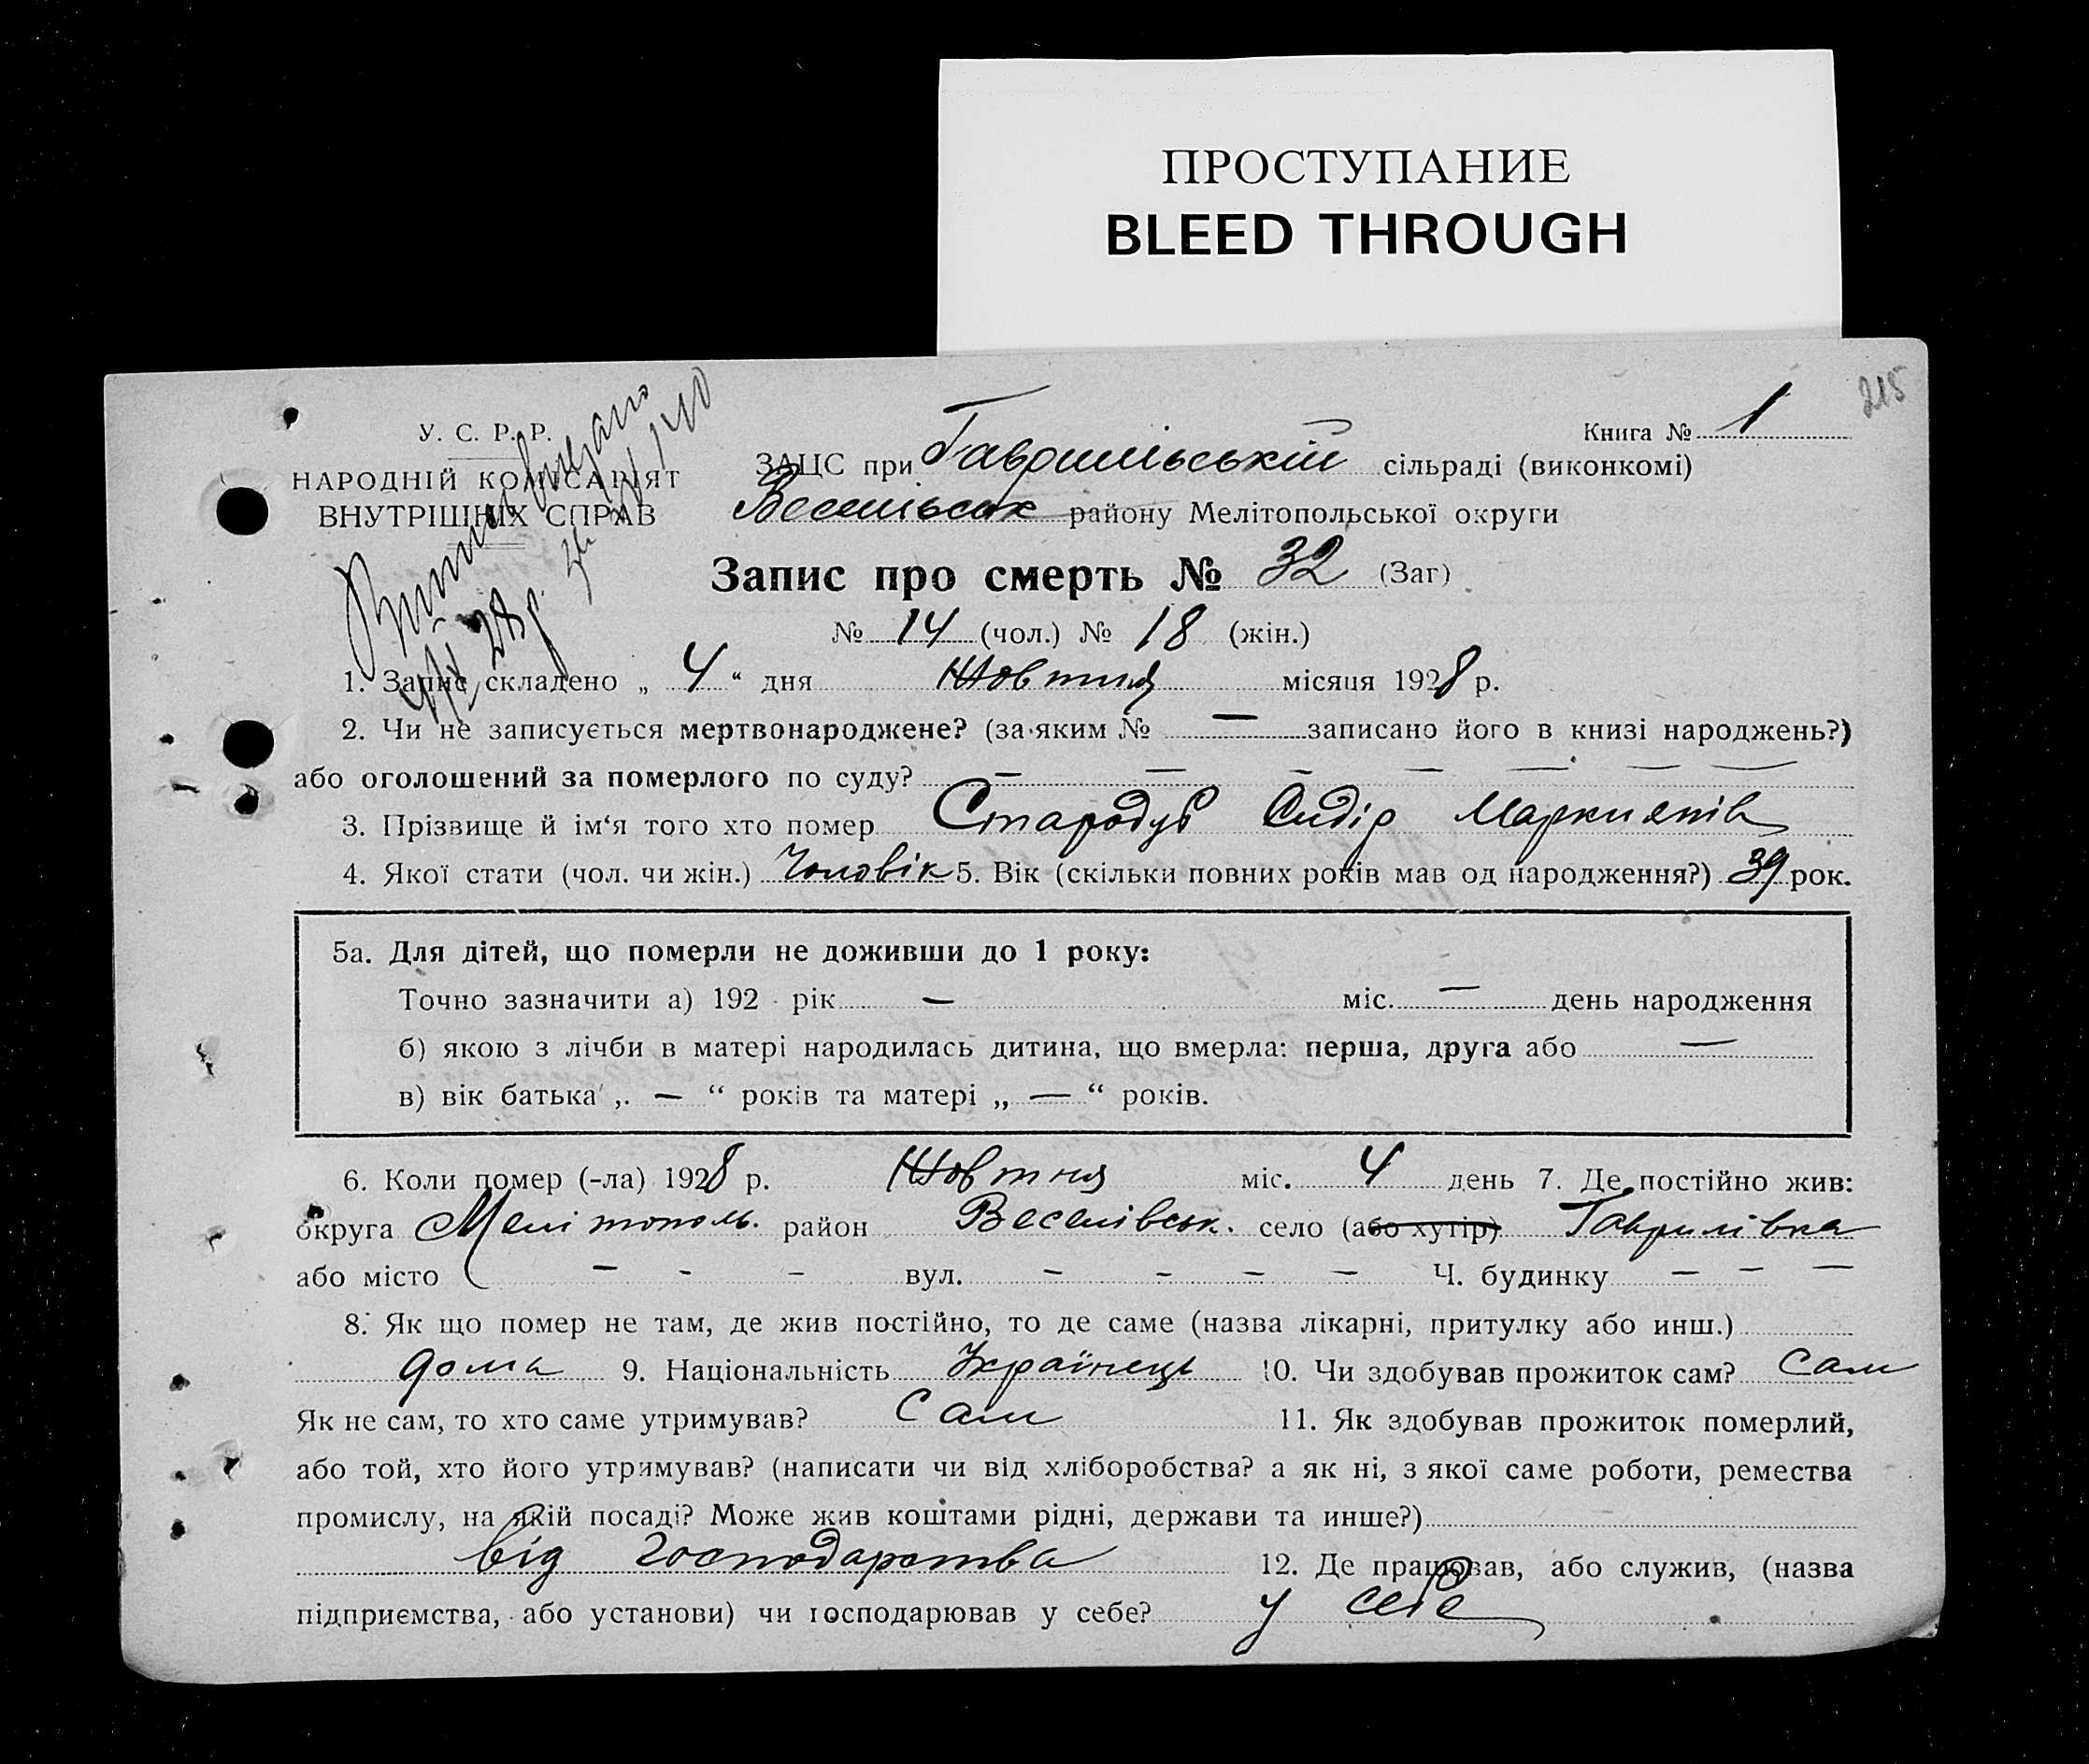 ПРОСТУПАНИЕ
BLEED THROUGH
215
У. С. Р. Р.
НАРОДНІЙ КОМІСАРІЯТ
ВНУТРІШНІХ СПРАВ
Книга № 1
ЗАЦС при Гаврилівській сільраді (виконкомі)
Веселівськ района Мелітопольської округи
Запис про смерть № 32 (Заг)
№ 14 (чол.) № 18 (жін.)
1. Запис складено „ 4 “ дня Жовтня місяця 1928 р.
2. Чи не записується мертвонароджене? (за яким № — записано його в книзі народжень?)
або оголошений за померлого по суду? — — — — — — —
3. Прізвище й ім‘я того хто помер Стародуб Сидір Маркиянів
4. Якої стати (чол. чи жін.) Чоловік 5. Вік (скільки повних років мав од народження?) 39 рок.
5а. Для дітей, що померли не доживши до 1 року:
Точно зазначити а) 192 рік — міс. — день народження
б) якою з лічби в матері народилась дитина, що вмерла: перша, друга або —
в) вік батька „ — “ років та матері „ — “ років.
6. Коли помер (-ла) 1928 р. Жовтня міс. 4 день 7. Де постійно жив:
округа Мелітополь. район Веселівськ. село (або хутір) Гаврилівка
або місто — - - вул. — — — — Ч. будинку — — —
8. Як що помер не там, де жив постійно, то де саме (назва лікарні, притулку або инш.)
дома 9. Національність Українець 10. Чи здобував прожиток сам? Сам
Як не сам, то хто саме утримував? Сам 11. Як здобував прожиток померлий,
або той, хто його утримував? (написати чи від хліборобства? а як ні, з якої саме роботи, ремества
промислу, на якій посаді? Може жив коштами рідні, держави та инше?)
від господарства 12. Де працював, або служив, (назва
підприємства, або установи) чи господарював у себе? у себе